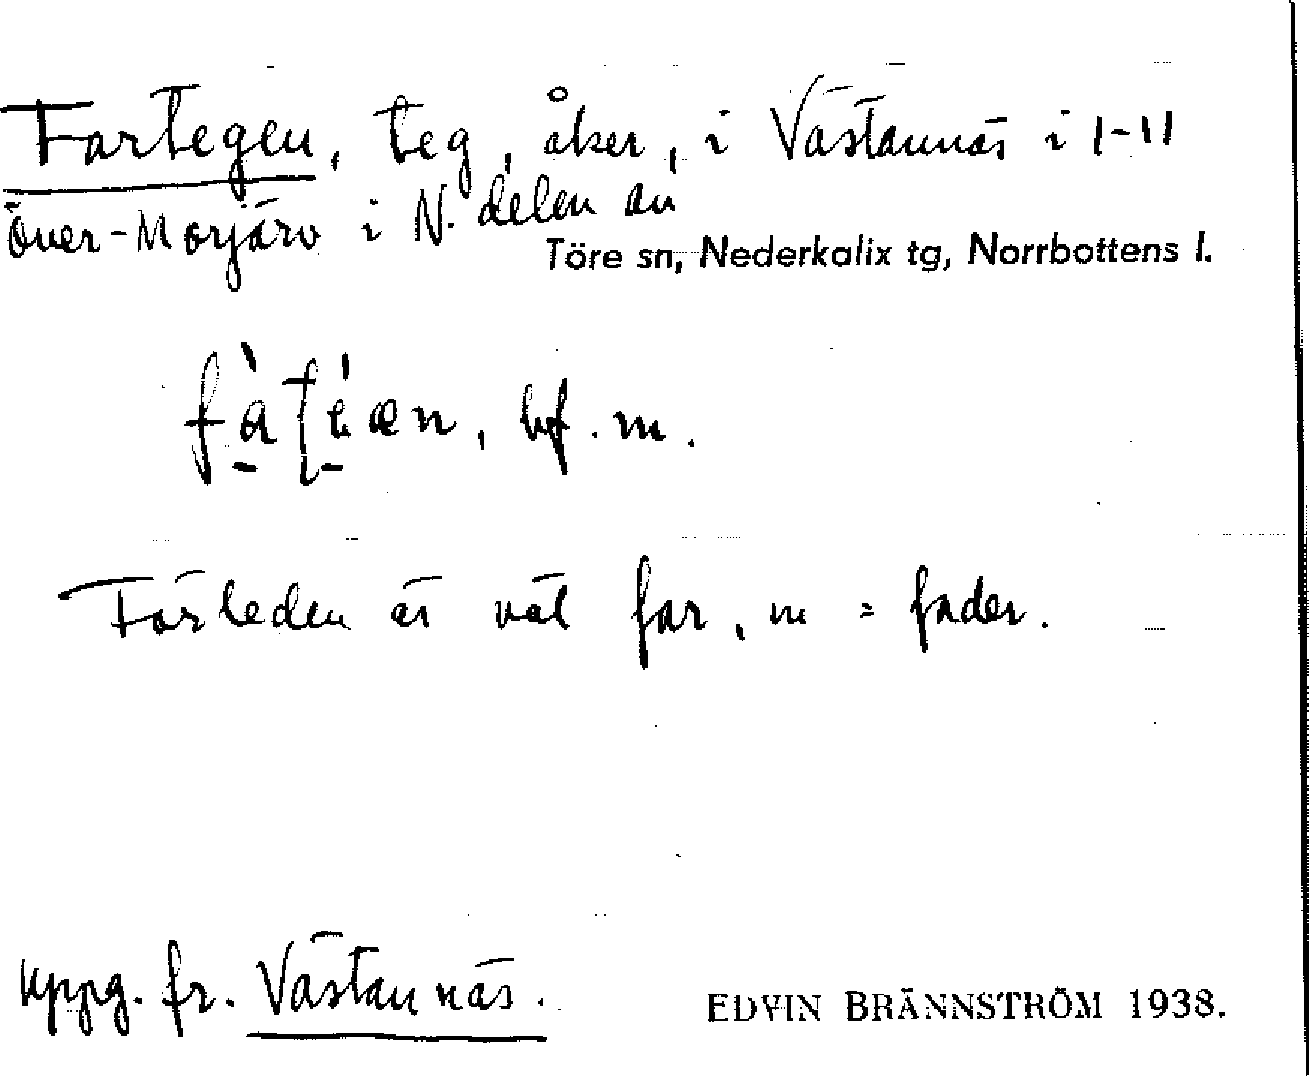 Fartegen, teg, åker, i Västannäs i 1-11
Över-Morjärv i N. delen av
Töre sn, Nederkalix tg, Norrbottens l.
bf. m.
Förleden är väl far, m = fader.
uppg. fr. Västannäs.
EDVIN BRÄNNSTRÖM 1938.